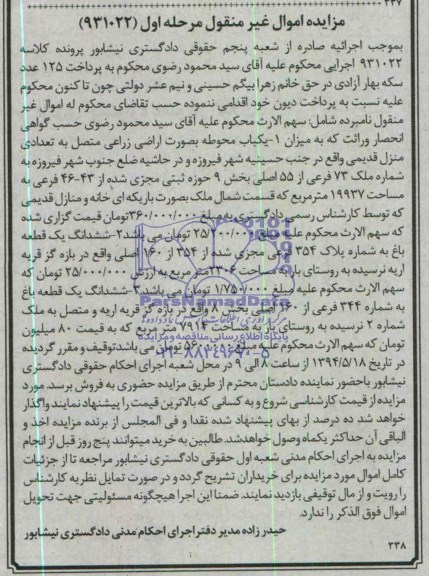 ۲۳۷
مزایده اموال غیر منقول مرحله اول (۹۳۱۰۲۲)
بموجب اجرائیه صادره از شعبه پنجم حقوقی دادگستری نیشابور پرونده کلاسه
۹۳۱۰۲۲ اجرایی محکوم علیه آقای سید محمود رضوی محکوم به پرداخت ۱۲۵ عدد
سکه بهار آزادی در حق خانم زهرا بیگم حسینی و نیم عشر دولتی چون تا کنون محکوم
علیه نسبت به پرداخت دیون خود اقدامی ننموده حسب تقاضای محکوم له اموال غیر
منقول نامبرده شامل: سهم الارث محکوم علیه آقای سید محمود رضوی حسب گواهی
انحصار وراثت که به میزان ۱-یکباب محوطه بصورت اراضی زراعی متصل به تعدادی
منزل قدیمی واقع در جنب حسینیه شهر فیروزه و در حاشیه ضلع جنوب شهر فیروزه به
شماره ملک ۷۳ فرعی از ۵۵ اصلی بخش ۹ حوزه ثبتی مجزی شده از ۴۳-۴۶ فرعی به
مساحت ۱۹۹۳۷ مترمربع که قسمت شمال ملک بصورت باریکه ای خانه و منازل قدیمی
که توسط کارشناس رسمی دادگستری به مبلغ ۳۶۰/۰۰۰/۰۰۰ تومان قیمت گزاری شده
که سهم الارث محکوم علیه مبلغ ۲۵/۲۰۰/۰۰۰ تومان می باشد ۲-ششدانگ یک قطعه
باغ به شماره پلاک ۳۵۴ فرعی مجزی شده از ۳۵۴ از ۱۶۰ اصلی واقع در بازه گز قریه
اریه نرسیده به روستای بار به مساحت ۲۳۰۶ متر مربع به ارزش ۲۵/۰۰۰/۰۰۰ تومان که
سهم الارث محکوم علیه مبلغ ۱/۷۵۰/۰۰۰ تومان می باشد. ۳-ششدانگ یک قطعه باغ
به شماره ۳۴۴ فرعی از ۱۶۰ اصلی بخش واقع در بازه گز قریه اریه و متصل به ملک
شماره ۲ نرسیده به روستای بار به مساحت ۷۹۱۴ متر مربع که به قیمت ۸۰ میلیون
تومان که سهم الارث محکوم علیه مبلغ تومان می باشد توقیف و مقرر گردیده
در تاریخ ۱۳۹۴/۵/۱۸ از ساعت ۸ الی ۹ در محل شعبه اجرای احکام حقوقی دادگستری
نیشابور باحضور نماینده دادستان محترم از طریق مزایده حضوری به فروش برسد. مورد
مزایده از قیمت کارشناسی شروع و به کسانی که بالاترین قیمت را پیشنهاد نمایند واگذار
خواهد شد ده درصد از بهای پیشنهاد شده نقدا و فی المجلس از برنده مزایده اخذ و
الباقی آن حداکثر یکماه وصول خواهد شد. طالبین به خرید میتوانند پنج روز قبل از انجام
مزایده به اجرای احکام مدنی شعبه اول حقوقی دادگستری نیشابور مراجعه تا از جزئیات
کامل اموال مورد مزایده برای خریداران تشریح گردد و در صورت تمایل نظریه کارشناسی
را رویت و از مال توقیفی بازدید نمایند. ضمنا این اجرا هیچگونه مسئولیتی جهت تحویل
اموال فوق الذکر را ندارد.
حیدر زاده مدیر دفتر اجرای احکام مدنی دادگستری نیشابور
۲۳۸
ParsNamadData
پایگاه اطلاع رسانی مناقصه و مزایده
۰۲۱-۸۸۳۴۹۶۷۰-۵